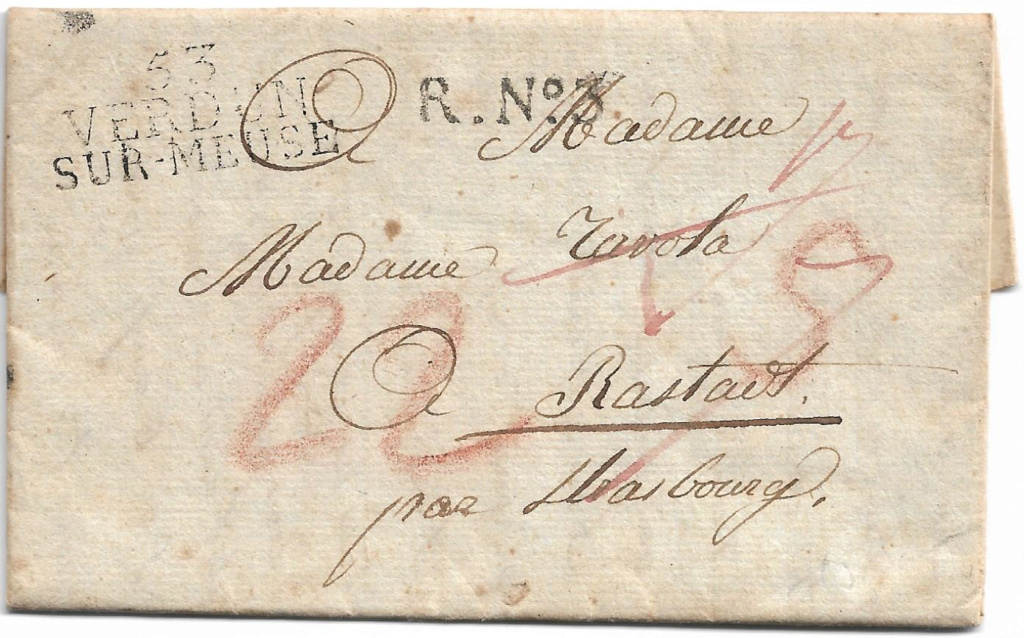 53
VERDUN
SUR-MEUSE
R. No. 3
A Madame
Madame Tavola
22
A Rastadt.
par Strasbourg.